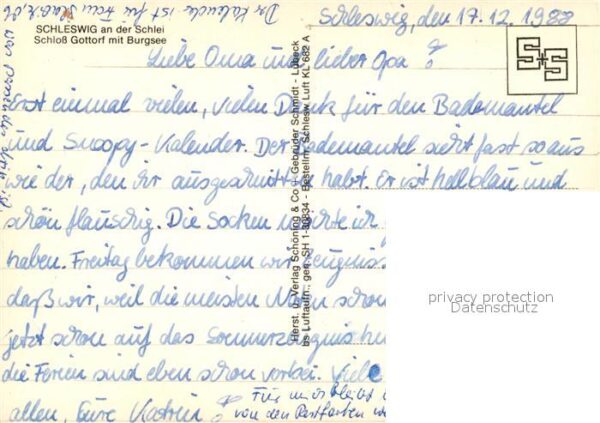 SCHLESWIG an der Schlei
Schloß Gottorf mit Burgsee
Schleswig, den 17.12.1988
Liebe Oma und lieber Opa!
Erst einmal vielen, vielen Dank für den Bademantel
und Snoopy-Kalender. Der Bademantel sieht fast so aus
wie der, den ihr ausgeschnitten habt. Er ist hellblau und
schön flauschig. Die Socken möchte ich
haben. Freitag bekommen wir Zeugnisse
daß wir, weil die meisten Noten schon
jetzt schon auf das Sommerzeugnis
die Ferien sind eben schon vorbei. Viele
allen, Eure Katrin
Für uns bleibt
von den Restfarben
Der Kalender ist für Frau
Herst. u. Verlag Schöning & Co + Gebrüder Schmidt - Lübeck
bis Luftaufn.: gen. SH 1-30834 - Bestellnr. Schlesw. Luft KL 682 A
S+S
privacy protection
Datenschutz